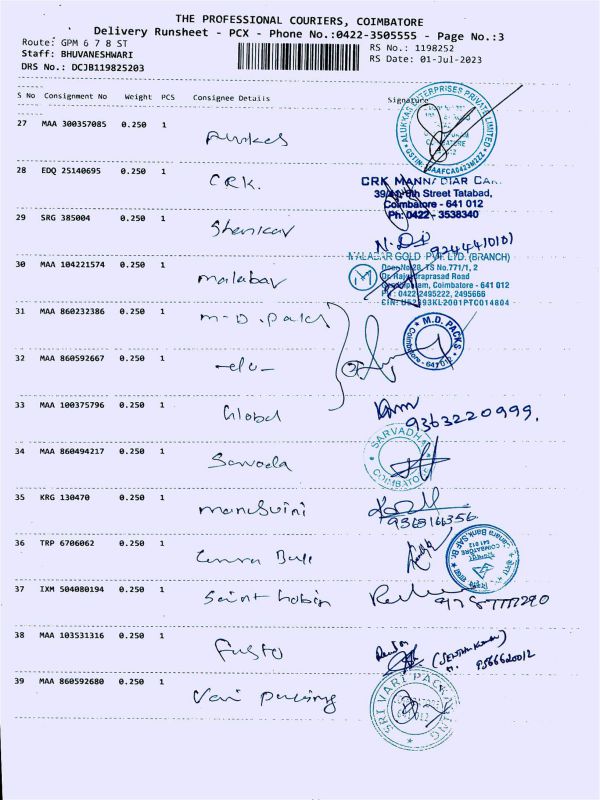 THE PROFESSIONAL COURIERS, COIMBATORE
Delivery Runsheet - PCX - Phone No.:0422-3505555 - Page No.:3
Route: GPM 6 7 8 ST
Staff: BHUVANESHWARI
DRS No.: DCJB119825203
RS No.: 1198252
RS Date: 01-Jul-2023
S No Consignment No Weight PCS Consignee Details Signature
ALUKKAS ENTERPRISES PRIVATE LIMITED
27 MAA 300357085 0.250 1
28 EDQ 25140695 0.250 1 CRK.
CRK MANNADIAR
39/4, 6th Street Tatabad,
Coimbatore - 641 012
Ph: 0422 - 3538340
29 SRG 385004 0.250 1 Shankar
9244410101
30 MAA 104221574 0.250 1 malabar
MALABAR GOLD PVT. LTD. (BRANCH)
Door No. TS No.771/1, 2
Dr. Rajendraprasad Road
Coimbatore - 641 012
Ph : 0422 2495222, 2495666
31 MAA 860232386 1 m-D. packs
M.D. PACKS
Coimbatore - 641 012
32 MAA 860592667 0.250 1 -do-
33 MAA 100375796 0.250 1 Global
9363220999.
34 MAA 860494217 0.250 1 Sarvoda
SARVADA
COIMBATORE
35 KRG 130470 0.250 1
9369166356
36 TRP 6706062 0.250 1
Canara Bank
37 IXM 504080194 0.250 1 Saint Gobin
38 MAA 103531316 0.250 1
39 MAA 860592680 0.250 1 Vari packing
SRI VARI PACKAGING